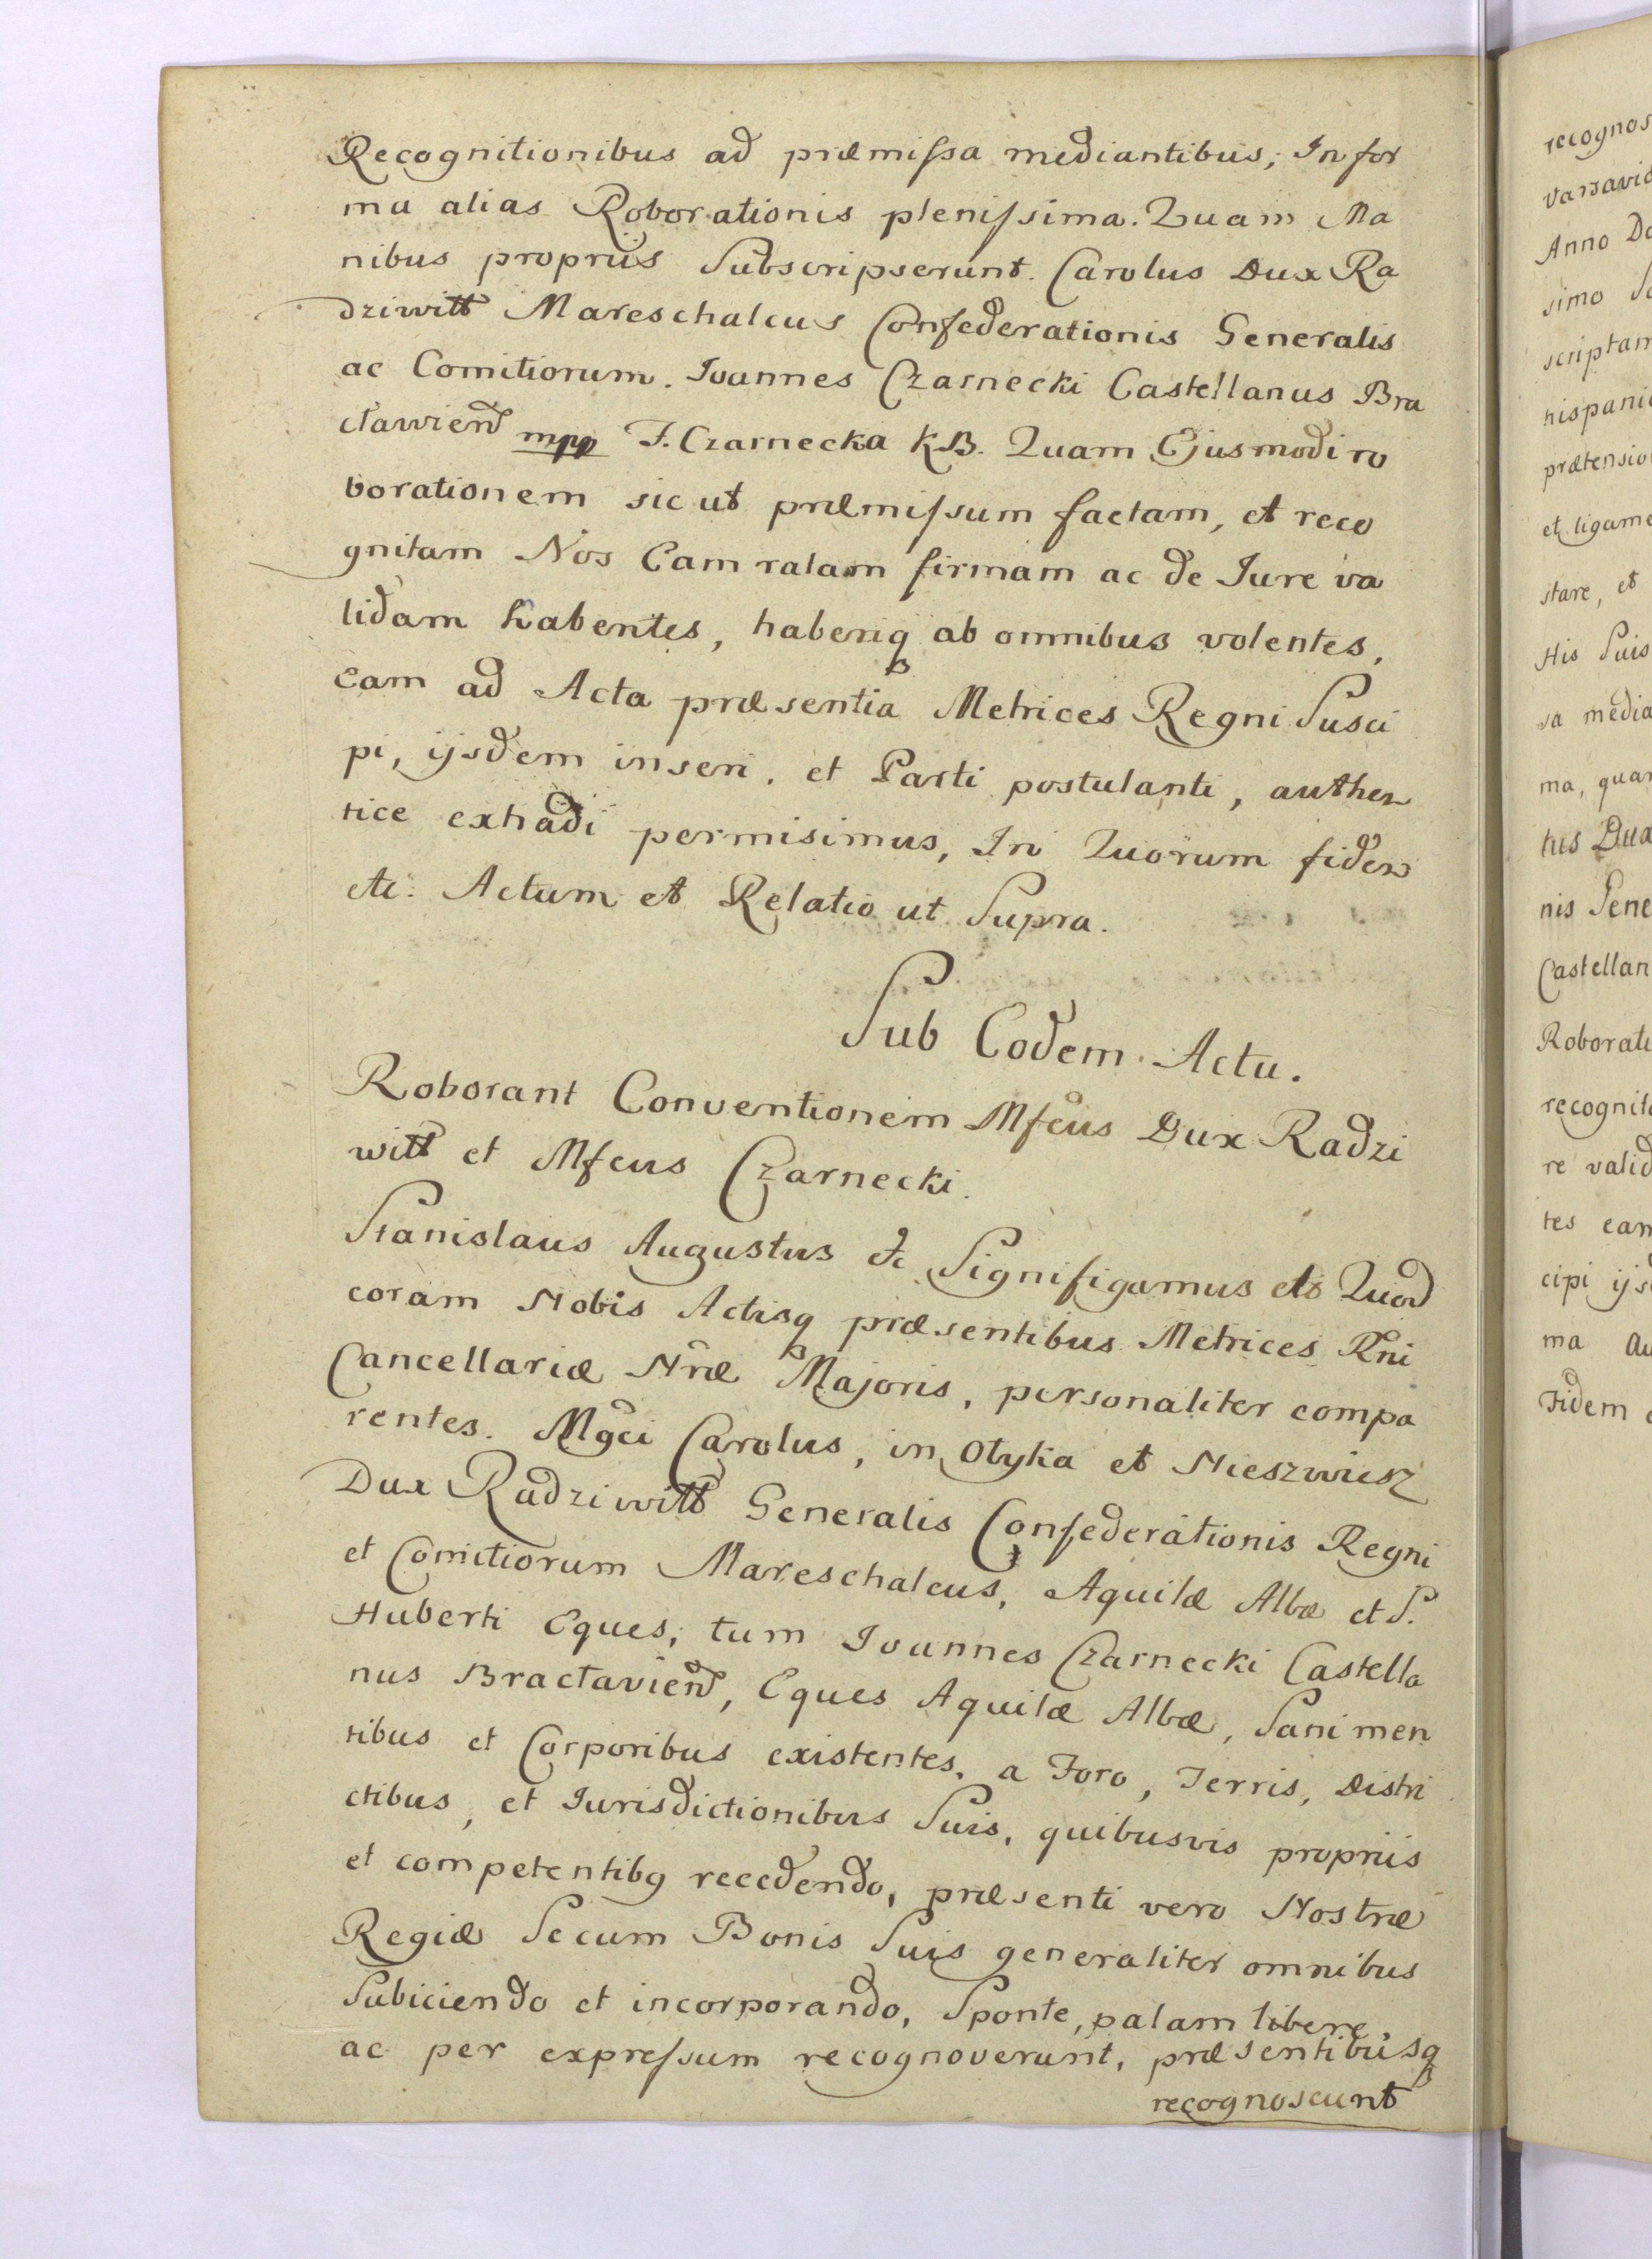 Recognitionibus ad præmissa mediantibus; In for
ma alias Roborationis plenissima. Quam Ma
nibus proprijs Subscripserunt. Carolus Dux Ra
dziwiłł Mareschalcus Confederationis Generalis
ac Comitiorum. Ioannes Czarnecki Castellanus Bra
cławien̄ mpp F. Czarnecka K.B. Quam Ejusmodi ro
borationem sic ut præmissum factam, et reco
gnitam Nos Eam ratam firmam ac de Iure va
lidam habentes, haberiq ab omnibus volentes,
Eam ad Acta præsentia Metrices Regni Susci
pi, ijsdem inseri, et Parti postulanti, authen
tice extradi permisimus, In Quorum fidem
etc: Actum et Relatio ut Supra.
Sub Eodem Actu.
Roborant Conventionem Mfcus Dux Radzi
wiłł et Mfcus Czarnecki.
Stanislaus Augustus &c Significamus etc Quod
coram Nobis Actisq præsentibus Metrices Rni
Cancellariæ Nræ Majoris, personaliter compa
rentes. Mgci Carolus, in Ołyka et Nieszwiesz
Dux Radziwiłł Generalis Confederationis Regni
et Comitiorum Mareschalcus, Aquilæ Albæ et S.
Huberti Eques, tum Ioannes Czarnecki Castella
nus Bracłavien̄, Eques Aquilæ Albæ, Sani men
tibus et Corporibus existentes, a Foro, Terris, Distri
ctibus, et Iurisdictionibus Suis, quibusvis proprijs
et competentibq recedendo, præsenti vero Nostræ
Regiæ Secum Bonis Suis generaliter omnibus
Subiciendo et incorporando, Sponte, palam libere,
ac per expressum recognoverunt, præsentibusq
recognoscunt
recognos
Varsavia
Anno Do
simo Se
scriptam
hispani
prætensio
et ligame
stare, et
His Suis
sa media
ma, quam
lus Dux
nis Gene
Castellan
Roborati
recognita
re valid
tes eam
cipi ijsd
ma au
Fidem